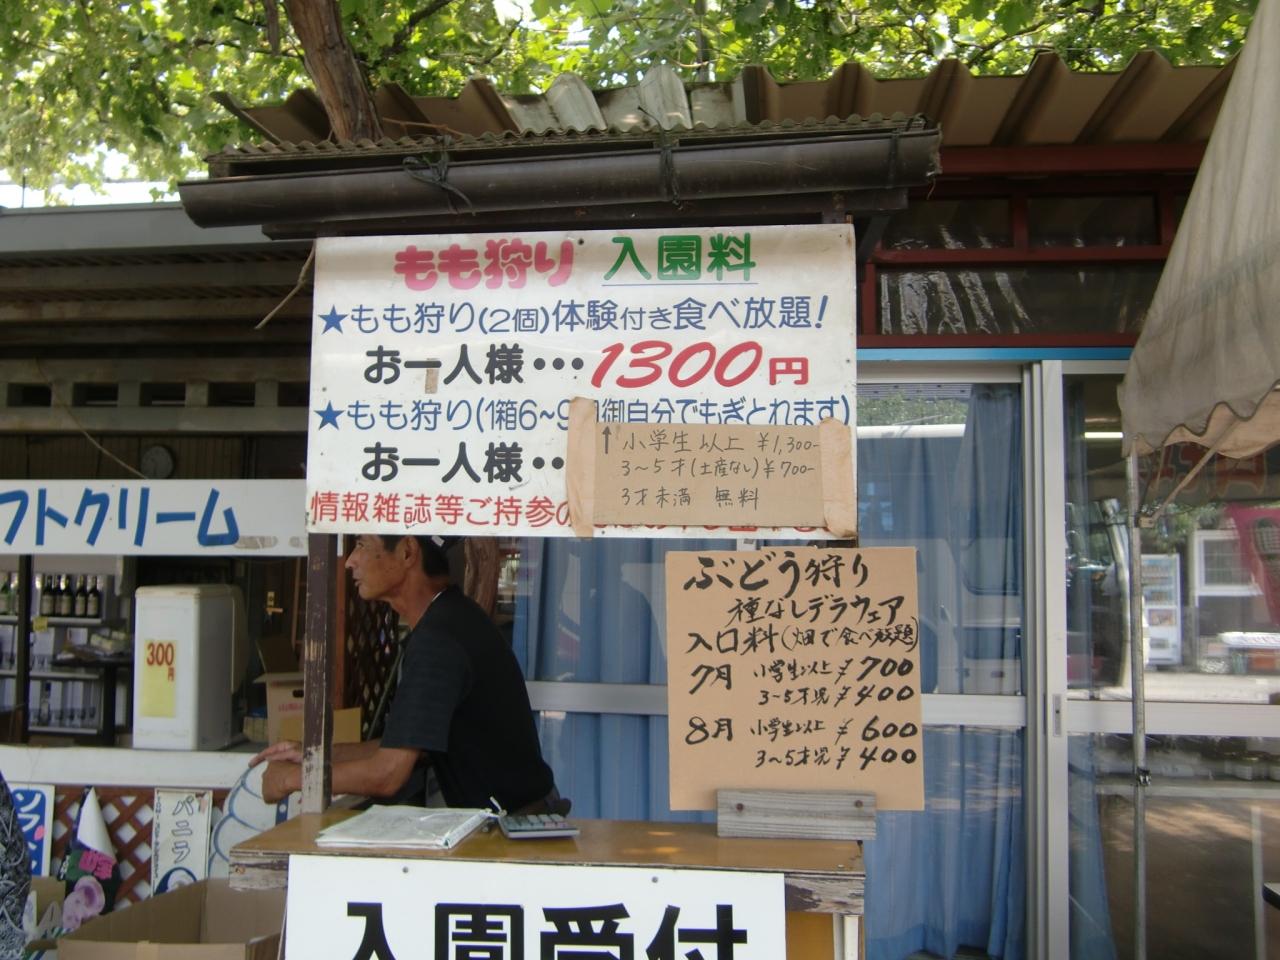 もも狩り 入園料
★もも狩り(2個)体験付き食べ放題!
お一人様・・・1300円
★もも狩り(1箱6~9 御自分でもぎとれます)
お一人様・・
情報雑誌等ご持参の
↑小学生以上 ¥1,300-
3~5才(土産なし)¥700-
3才未満 無料
ぶどう狩り
種なしデラウェア
入口料(畑で食べ放題)
7月 小学生以上 ¥700
3~5才児 ¥400
8月 小学生以上 ¥600
3~5才児 ¥400
入園受付
フトクリーム
300円
バニラ
ソフト